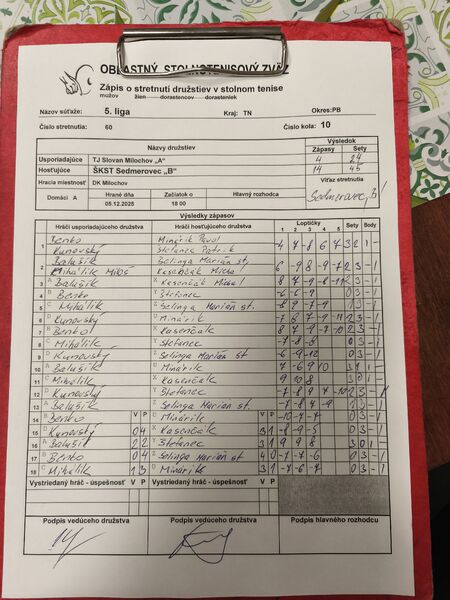 OBLASTNÝ STOLNOTENISOVÝ ZVÄZ
Zápis o stretnutí družstiev v stolnom tenise
mužov žien dorastencov dorasteniek
Názov súťaže: 5. liga Kraj: TN Okres:PB
Číslo stretnutia: 60 Číslo kola: 10
Názvy družstiev Výsledok
Zápasy Sety
Usporiadajúce TJ Slovan Milochov „A“ 4 24
Hosťujúce ŠKST Sedmerovec „B“ 14 45
Hracia miestnosť DK Milochov Víťaz stretnutia
Domáci A Hrané dňa Začiatok o Hlavný rozhodca Sedmerovec „B“
05.12.2025 18 00
Výsledky zápasov
Hráči usporiadajúceho družstva Hráči hosťujúceho družstva Loptičky Sety Body
1 2 3 4 5
1 Benko Minárik Pavol -4 7 -8 6 7 3 2 1 -
Kunovský Štefanec Patrik
2 Balušík Selinga Marián st. 6 -9 8 -9 -7 2 3 - 1
Mihálik Miloš Kasenčák Michal
3 A Balušík X Kasenčák Michal 8 7 -9 -8 -11 2 3 - 1
4 B Benko Y Štefanec -6 -6 -9 0 3 - 1
5 C Mihálik Z Selinga Marián st. 0 3 - 1
6 D Kunovský U Minárik 2 3 - 1
7 B Benko X Kasenčák 8 7 2 3 - 1
8 C Mihálik Y Štefanec -7 -8 -8 0 3 - 1
9 D Kunovský Z Selinga Marián st -6 -9 -12 0 3 - 1
10 A Balušík U Minárik 7 -6 9 10 3 1 1 -
11 C Mihálik X Kasenčák 9 10 8 3 0 1 -
12 D Kunovský Y Štefanec -7 -8 9 7 -10 2 3 - 1
13 A Balušík Z Selinga Marián st -8 -7 -9 0 3 - 1
14 B Benko V P U Minárik V P -10 -7 -7 0 3 - 1
15 D Kunovský 0 4 X Kasenčák 3 1 -8 -9 -5 0 3 - 1
16 A Balušík 2 2 Y Štefanec 3 1 9 9 8 3 0 1
17 B Benko 0 4 Z Selinga Marián st 4 0 -7 -7 -6 0 3 - 1
18 C Mihálik 1 3 U Minárik 3 1 -7 -6 -7 0 3 - 1
Vystriedaný hráč - úspešnosť V P Vystriedaný hráč - úspešnosť V P
Podpis vedúceho družstva Podpis vedúceho družstva Podpis hlavného rozhodcu